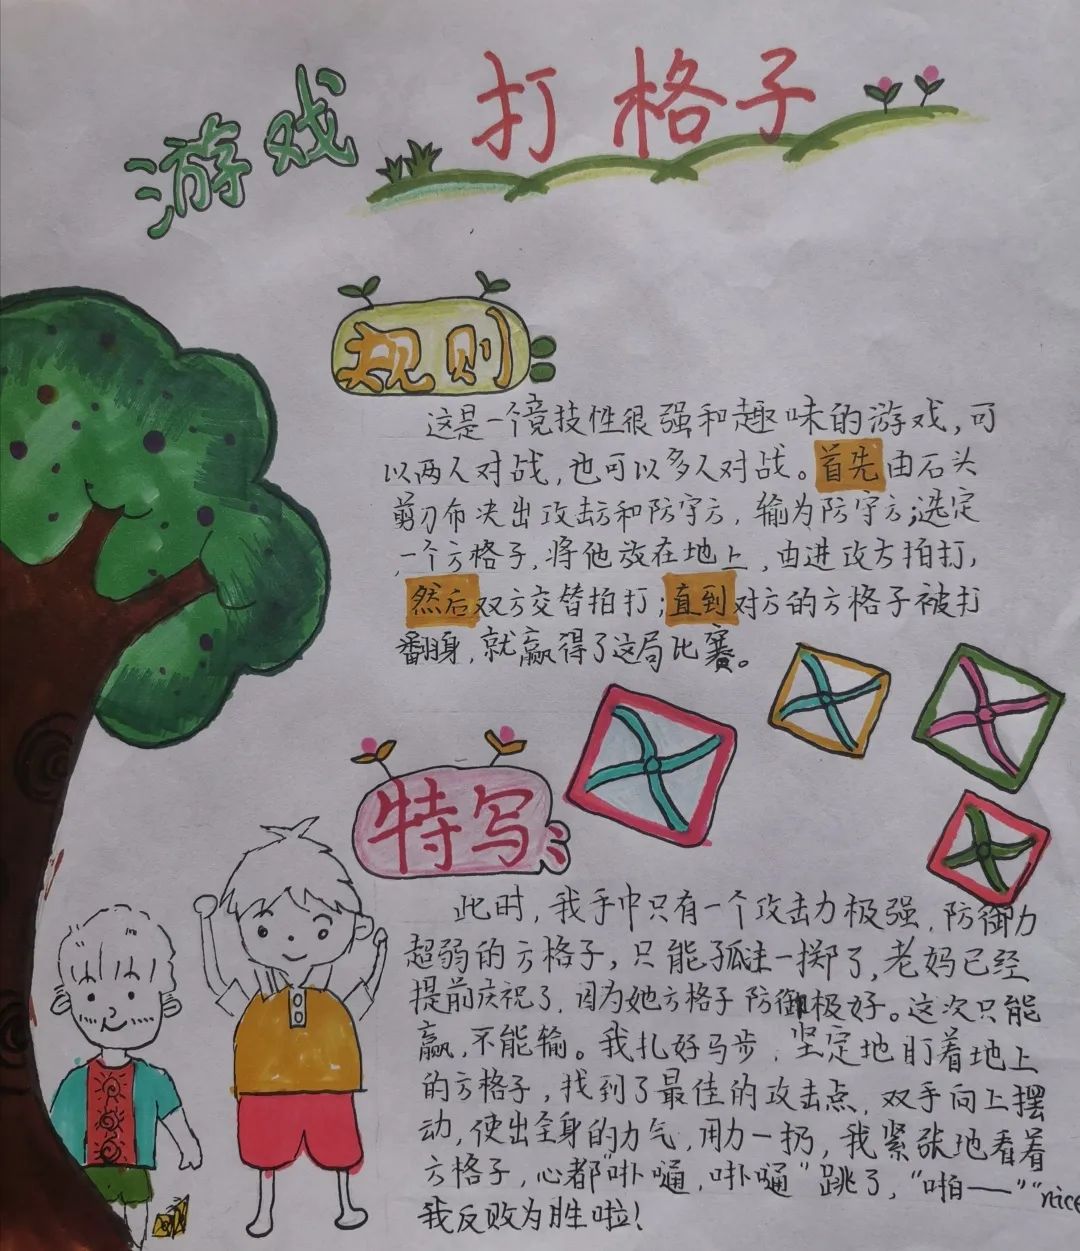 游戏 打格子
规则
这是一个竞技性很强和趣味的游戏,可
以两人对战,也可以多人对战。首先由石头
剪刀布决出攻击方和防守方,输为防守方;选定
一个方格子,将他放在地上,由进攻方拍打,
然后双方交替拍打;直到对方的方格子被打
翻身,就赢得了这局比赛。
特写
此时,我手中只有一个攻击力极强,防御力
超弱的方格子,只能孤注一掷了,老妈已经
提前庆祝了,因为她方格子防御极好。这次只能
赢,不能输。我扎好马步,坚定地盯着地上
的方格子,找到了最佳的攻击点,双手向上摆
动,使出全身的力气,用力一扔,我紧张地看着
方格子,心都"卟嗵,卟嗵"跳了,"啪——""nice
我反败为胜啦!